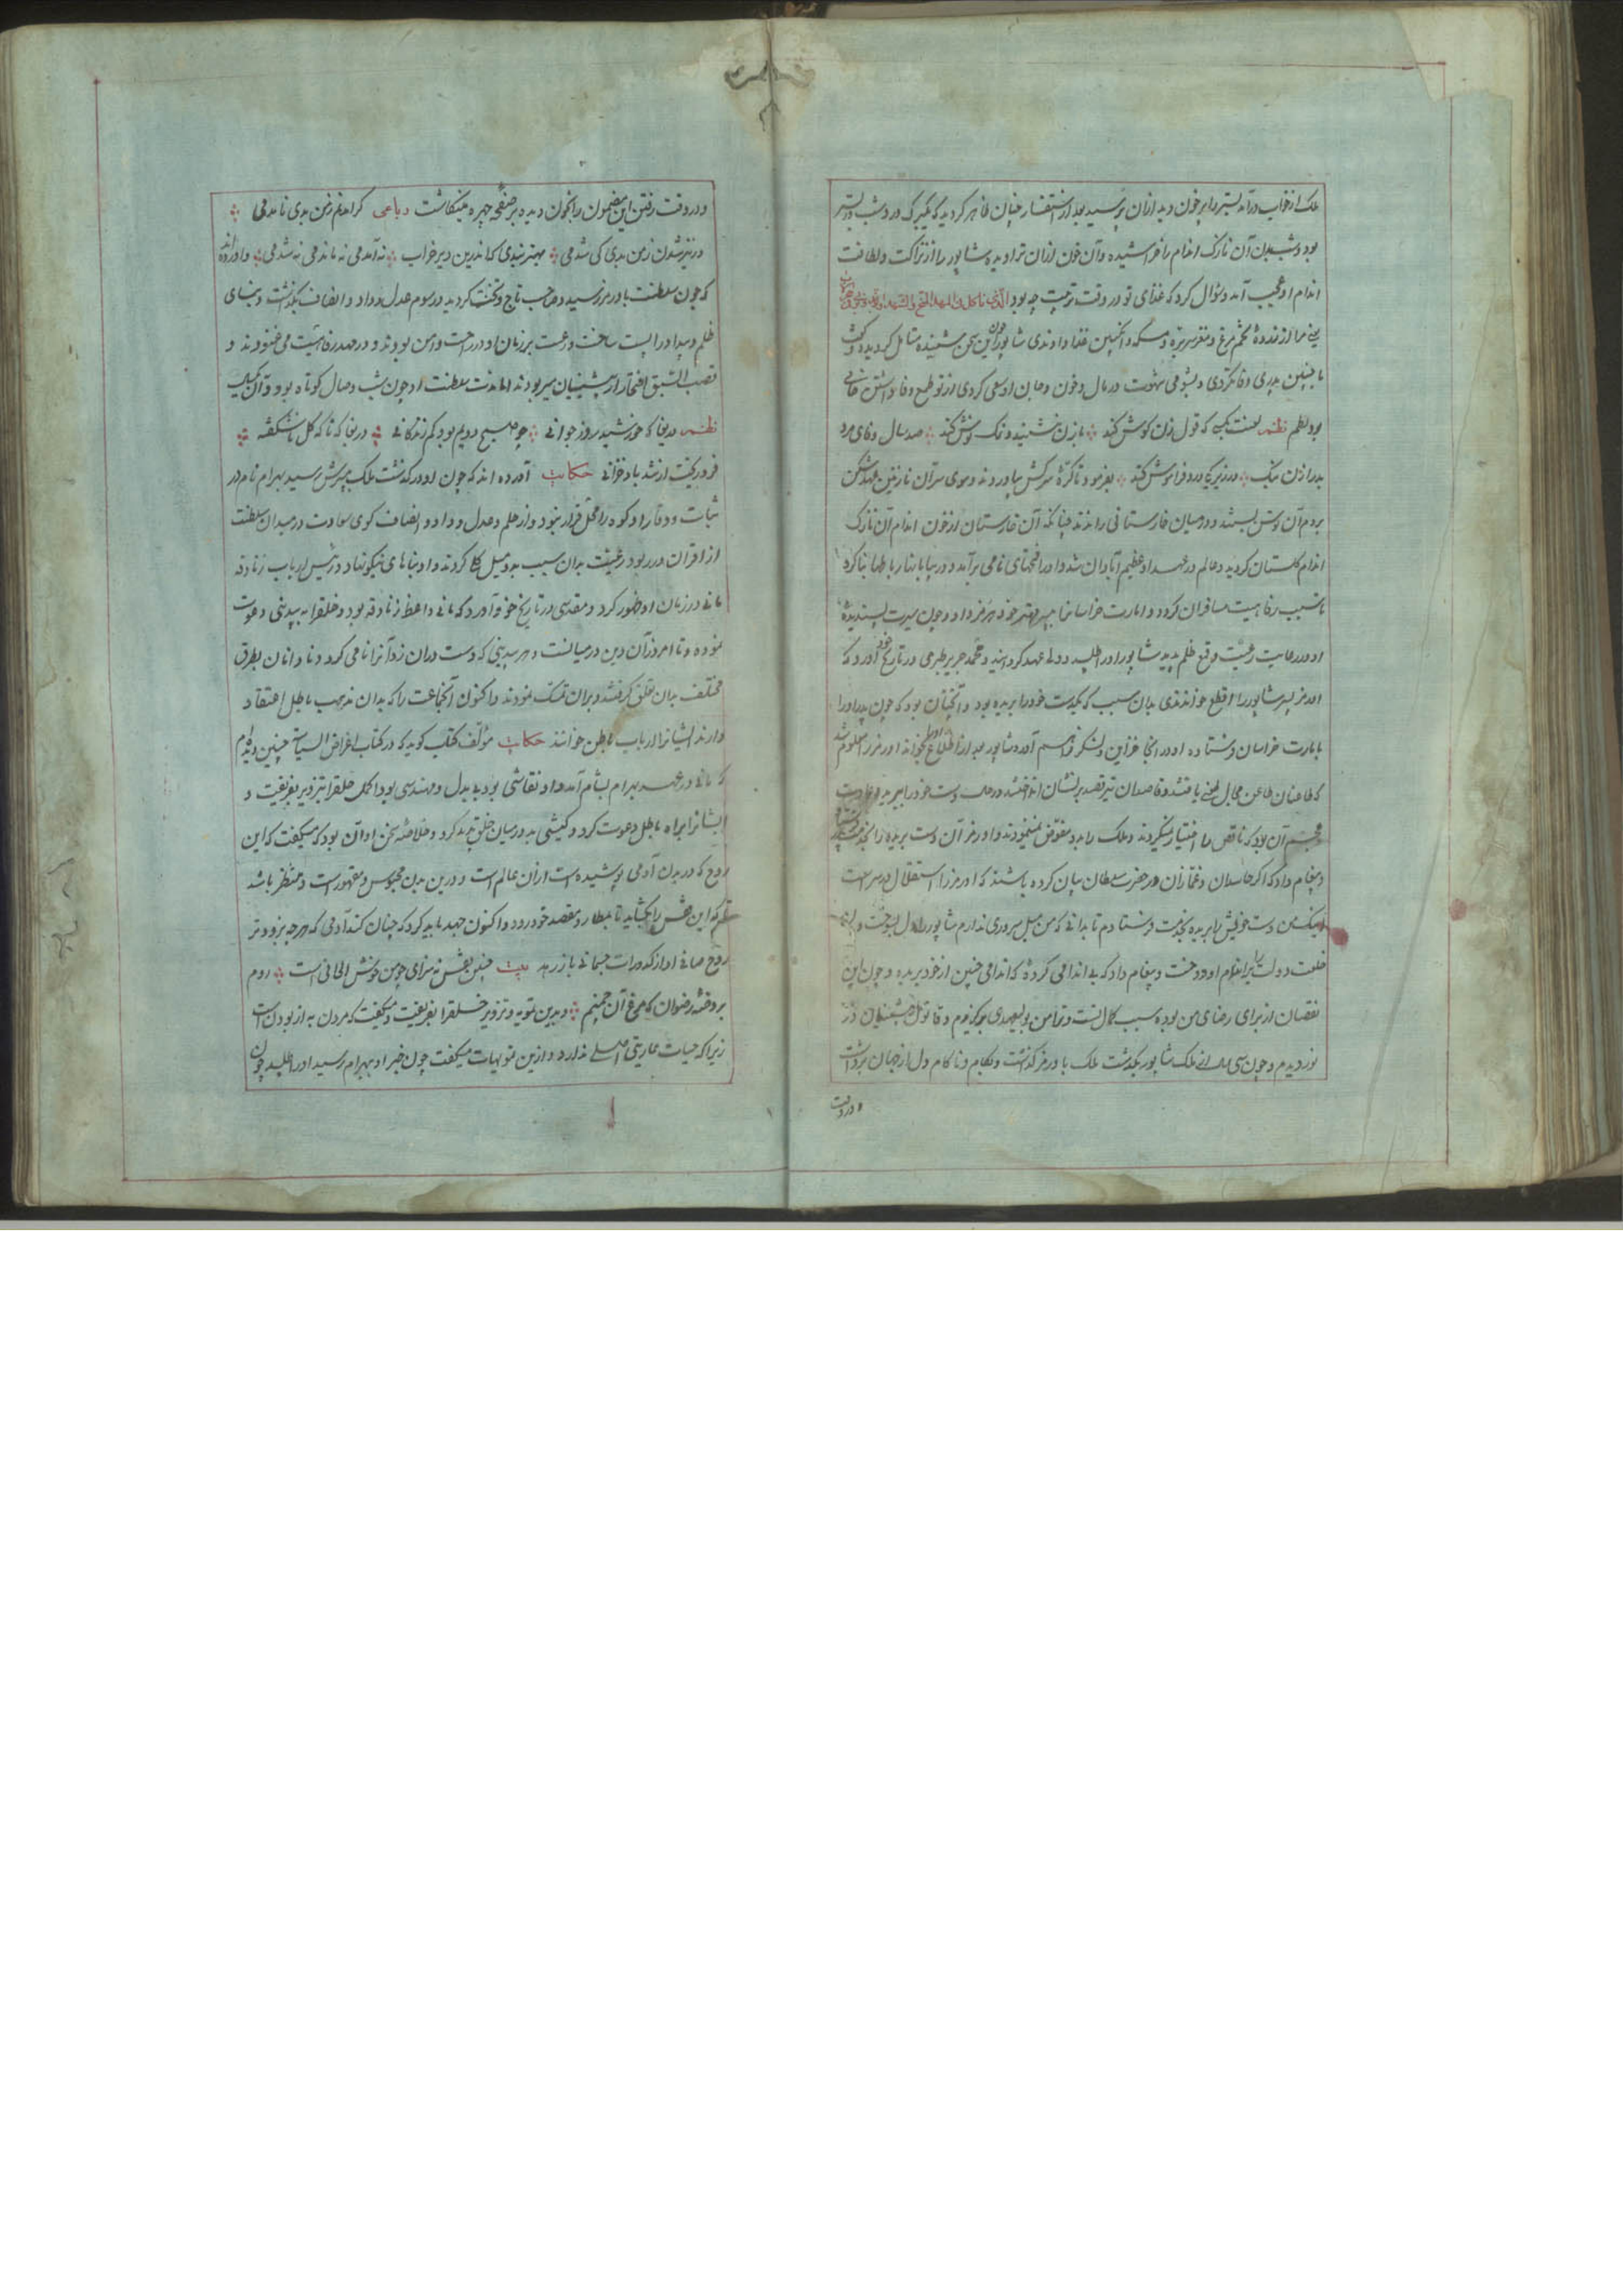 ملک از خواب درآمد بستر را پر خون دید ازان پرسید بعد از استفسار چنان ظاهر کردید که یکبرک مورد شب در بستر
بود و شب بدن آن نازک اندام را خراشیده و آن خون ازان تراویده شاپور را از نزاکت و لطافت
اندام او عجب آمد و سؤال کرد که غذای تو در وقت تربیت چه بود
یعنی مرا از زرده تخم مرغ و مغز سر بره و مسکه و انکبین غذا دادندی شاپور چون این سخن بشنید متامل کردید و کفت
با چنین پدری وفا نکردی و بشومی شهوت در مال و خون و جان او سعی کردی از تو طمع وفا داشتن خامی
بود نظم لعنت بکسی که قول زن کوش کند با زن نشیند و نمک نوش کند صد سال وفای مرد
بدر از زن نیک در زیر یکی درد فراموش کند بفرمود تا کره سرکش بیاوردند و موی سر آن نازنین عهد شکن
بر دم آن توسن بستند و در میان خارستانی راندند چنانکه آن خارستان از خون اندام آن نازک
اندام کلستان کردید و عالم در عهد او عظیم آبادان شد و او را فتحهای نامی برآمد و در بیابانها رباطها بنا کرد
تا سبب رفاهیت مسافران کردد و امارت خراسان را بپسر مهتر خود هرمز داد و چون سیرت پسندیده
او در رعایت رعیت و قمع ظلم بدید شاپور او را طلبید و ولی عهد کردانید و محمد جریر طبری در تاریخ خود آورد که
اورمز پسر شاپور را اقطع خواندندی بدان سبب که یکدست خود را بریده بود و آنچنان بود که چون پدر او را
بامارت خراسان فرستاده او در آنجا خزاین و لشکر فراهم آورد شاپور بعد از اطلاع او را بخواند اورمز را معلوم شد
که طاعنان طاعن مجال سخن یافتند و قاصدان تیر قصد بر نشان انداختند در حال دست خود را ببرید و عادت
عجم آن بود که ناقص را اختیار نمیکردند و ملک را بدو مفوض نمینمودند و اورمز آن دست بریده را بخدمت پدر فرستاد
و پیغام داد که اکر حاسدان و غمازان در حضرت سلطان بیان کرده باشند که اورمز را استقلال در سر است
اینک من دست خویش را بریده بخدمت فرستادم تا بدانی که من میل سروری ندارم شاپور را دل بسوخت و
خلعت دولت بر اندام او دوخت و پیغام داد که بی اندامی کردهٔ که اندامی چنین از خود بریده و چون این
نقصان از برای رضای من بوده سبب کمال تست و ترا من بولیعهدی برکزیدم و قانون پیشینیان در
نوردیدم و چون سی سال از ملک شاپور بکذشت ملک باورمز کذاشت و بکام و ناکام دل از جهان برداشت
و در وقت
و در وقت رفتن این مضمون را بخون دیده بر صفحه چهره مینکاشت رباعی کر آمدنم ز من بدی نامدمی
ور نیز شدن ز من بدی کی شدمی بهتر نبدی که اندرین دیر خراب نه آمدمی نه ماندمی نه شدمی و آورده اند
که چون سلطنت باورمز رسید و صاحب تاج و تخت کردید در رسوم عدل و داد و انصاف بکوشت و بنای
ظلم و بیداد را پست ساخت و رعیت بر زمان او در راحت و امن بودند و در مهد رفاهیت می غنودند و
قصب السبق افتخار از پیشینیان میربودند اما مدت سلطنت او چون شب وصال کوتاه بود و آن یکسال
نظم دریغا که خورشید روز جوانی چو صبح دویم بود کم زندکانی دریغا که ناکه کل ناشکفته
فرو ریخت از تند باد خزانی حکایت آورده اند که چون او در کذشت ملک بپسرش رسید بهرام نام در
ثبات و وقار او کوه را محل قرار نبود و از حلم و عدل و داد و انصاف کوی سعادت در میدان سلطنت
از اقران در ربود رعیت بدان سبب بدو میل کلی کردند و او بناهای نیکو نهاد و رئیس ارباب زنادقه
مانی در زمان او ظهور کرد و مقدسی در تاریخ خود آورد که مانی واعظ زنادقه بود و خلق را به بیدینی دعوت
نموده و تا امروز آن دین در میانست و هر بیدینی که دست دران زد آنرا نامی کرد و نادانان بطرق
مختلف بدان تعلق کرفتند و بران تمسک نمودند و اکنون آنجماعت را که بدان مذهب باطل اعتقاد
دارند ایشانرا ارباب باطن خوانند حکایت مؤلف کتاب کوید که در کتاب اغراض السیاسة چنین دیدم
که مانی در عهد بهرام بشام آمد و او نقاشی بود بی بدل و مهندسی بود اکمل خلق را بتزویر بفریفت و
ایشانرا براه باطل دعوت کرد و کیشی بد در میان خلق پدید کرد و خلاصهٔ سخن او آن بود که میکفت که این
روح که در بدن آدمی پوشیده است ازان عالم است و درین بدن محبوس و مقهور است و منتظر باشد
که این قفس را بکشاید تا بمطار و مقصد خود رود و اکنون جهد باید کرد که چنان کند آدمی که هرچه زودتر
روح صافی او از کدورات جسمانی باز رهد بیت چنین قفس نه سزای چو من خوش الحانی است روم
بروضه رضوان که مرغ آن چمنم و بدین تمویه و تزویر خلق را بفریفت و میکفت که مردن به از بودن است
زیرا که حیات عاریتی اصلی ندارد و ازین تمویهات میکفت چون خبر او بهرام رسید او را طلبید چون